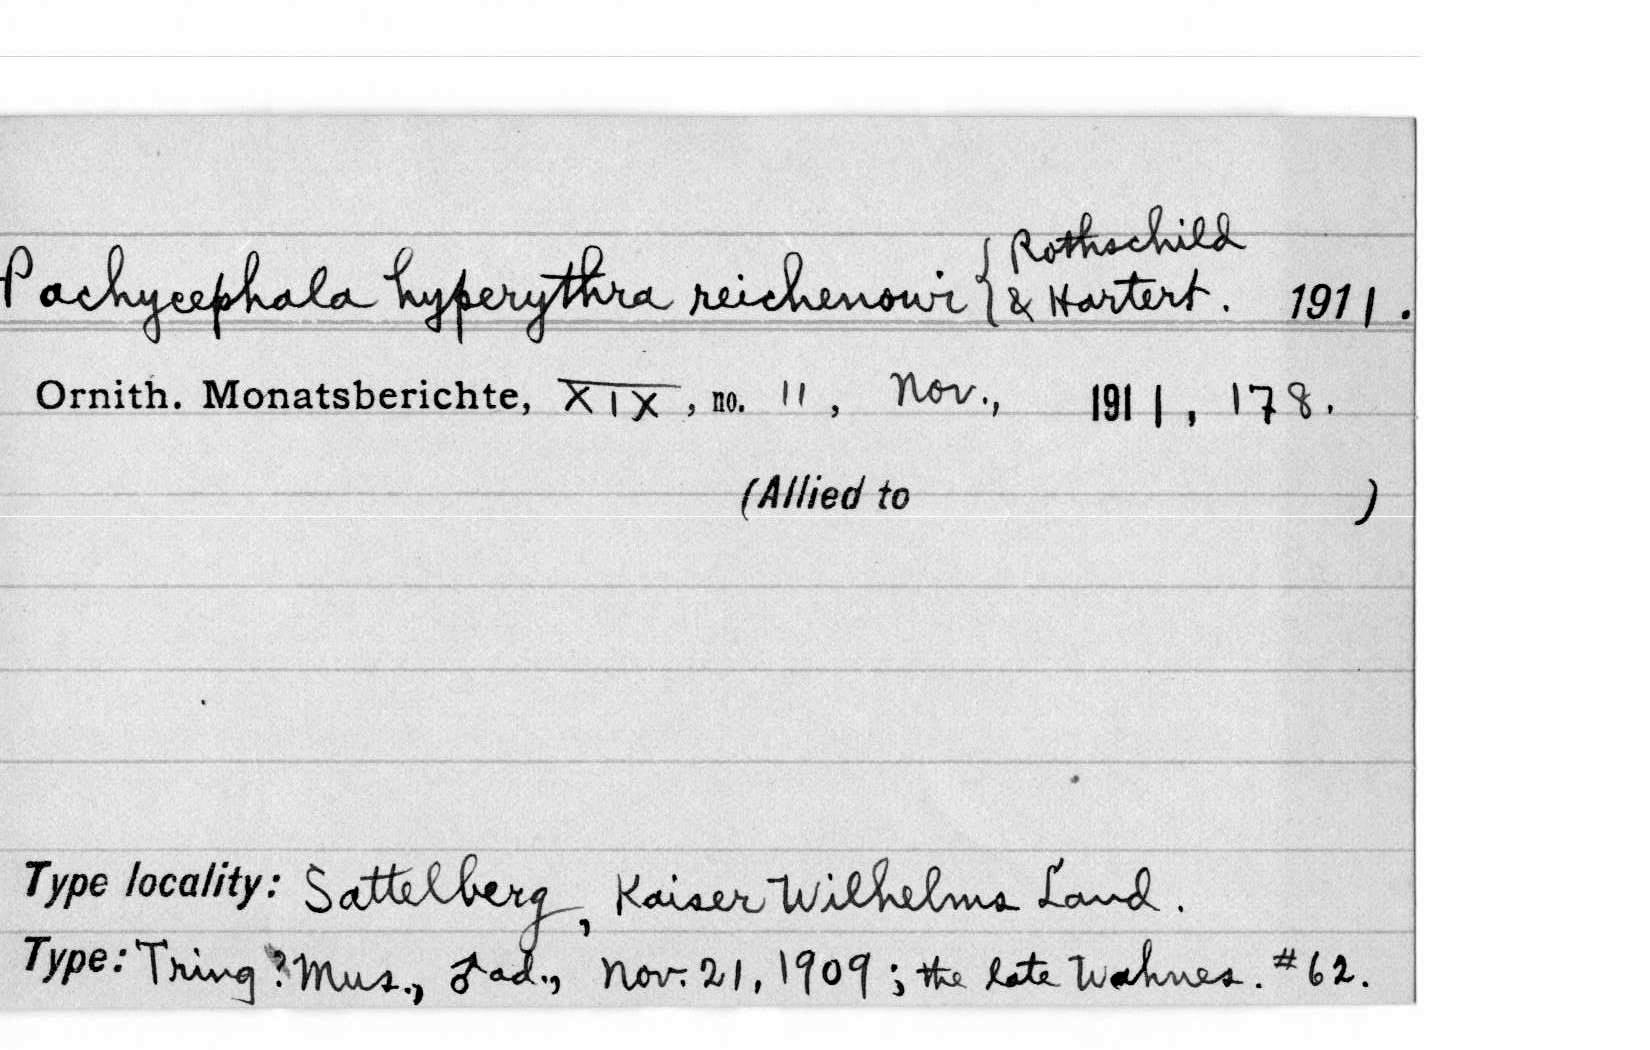 Pachycephala hyperythra reichenowi { Rothschild & Hartert. 1911.
Ornith. Monatsberichte, XIX, no. 11, Nov., 1911, 178.
(Allied to )
Type locality: Sattelberg, Kaiser Wilhelms Land.
Type: Tring? Mus., ♂ ad., Nov. 21, 1909; the late Wahnes. #62.